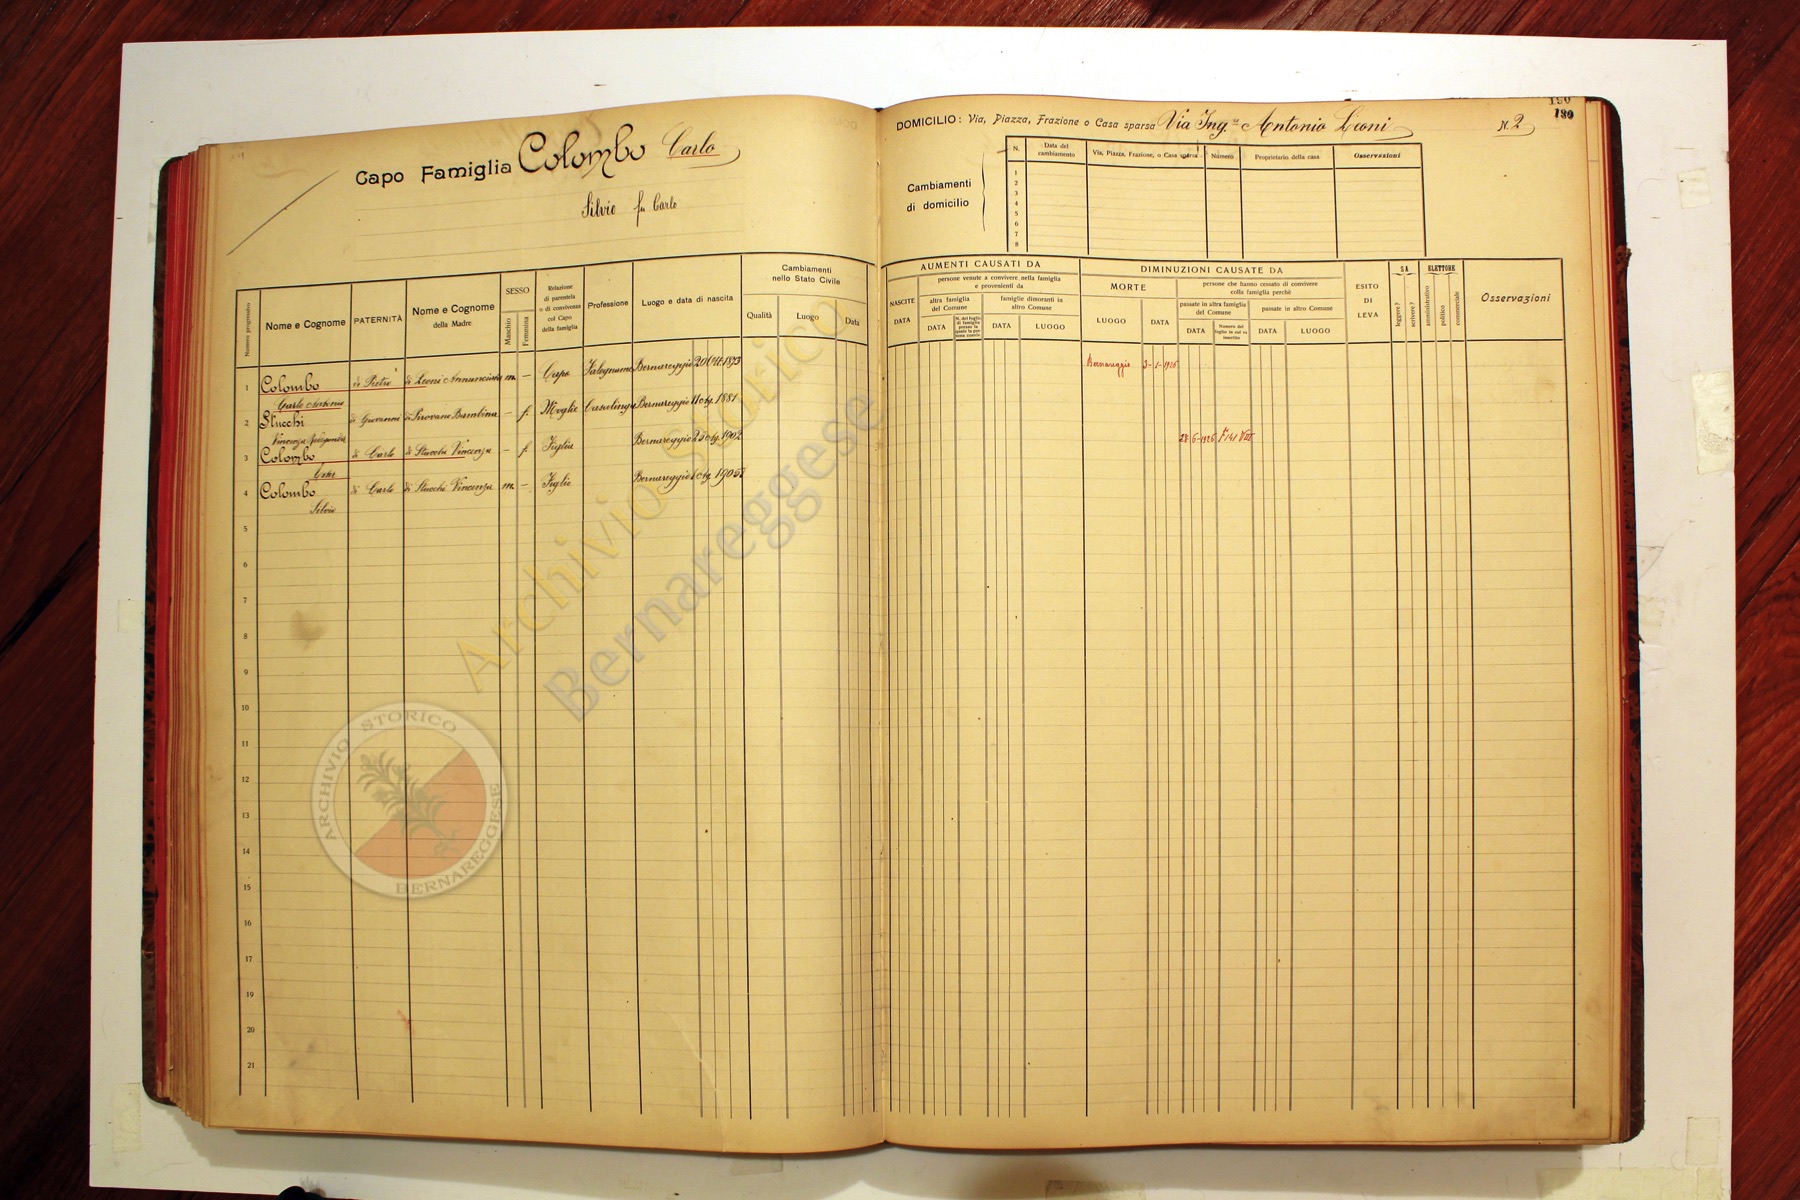 Capo Famiglia Colombo Carlo
Silvio fu Carlo
Numero progressivo
Nome e Cognome
PATERNITÀ
Nome e Cognome
della Madre
SESSO
Maschio
Femmina
Relazione
di parentela
o di convivenza
col Capo
della famiglia
Professione
Luogo e data di nascita
Cambiamenti
nello Stato Civile
Qualità
Luogo
Data
1 Colombo di Pietro di Leoni Annunciata m. — Capo Falegname Bernareggio 20 1873
Carlo Antonio
2 Stucchi di Giovanni di Pirovano Bambina — f. Moglie Casalinga Bernareggio 11 1881
Vincenza
3 Colombo di Carlo di Stucchi Vincenza — f. Figlia Bernareggio 1902
Ester
4 Colombo di Carlo di Stucchi Vincenza m. — Figlio Bernareggio
Silvio
5
6
7
8
9
10
11
12
13
14
15
16
17
18
19
20
21
190
130
DOMICILIO: Via, Piazza, Frazione o Casa sparsa Via Ing.re Antonio Leoni N. 2
Cambiamenti
di domicilio
N.
Data del
cambiamento
Via, Piazza, Frazione, o Casa sparsa
Numero
Proprietario della casa
Osservazioni
1
2
3
4
5
6
7
8
AUMENTI CAUSATI DA
NASCITE
DATA
persone venute a convivere nella famiglia
e provenienti da
altra famiglia
del Comune
DATA
N. del foglio
di famiglia
famiglie dimoranti in
altro Comune
DATA
LUOGO
DIMINUZIONI CAUSATE DA
MORTE
LUOGO
DATA
persone che hanno cessato di convivere
colla famiglia perchè
passate in altra famiglia
del Comune
DATA
Numero del
foglio in cui va
inserito
passate in altro Comune
DATA
LUOGO
ESITO
DI
LEVA
SA
leggere?
scrivere?
ELETTORE
amministrativo
politico
commerciale
Osservazioni
Bernareggio 3-1-1926
28-6-1926
Archivio Storico
Bernareggese
ARCHIVIO STORICO
BERNAREGGESE